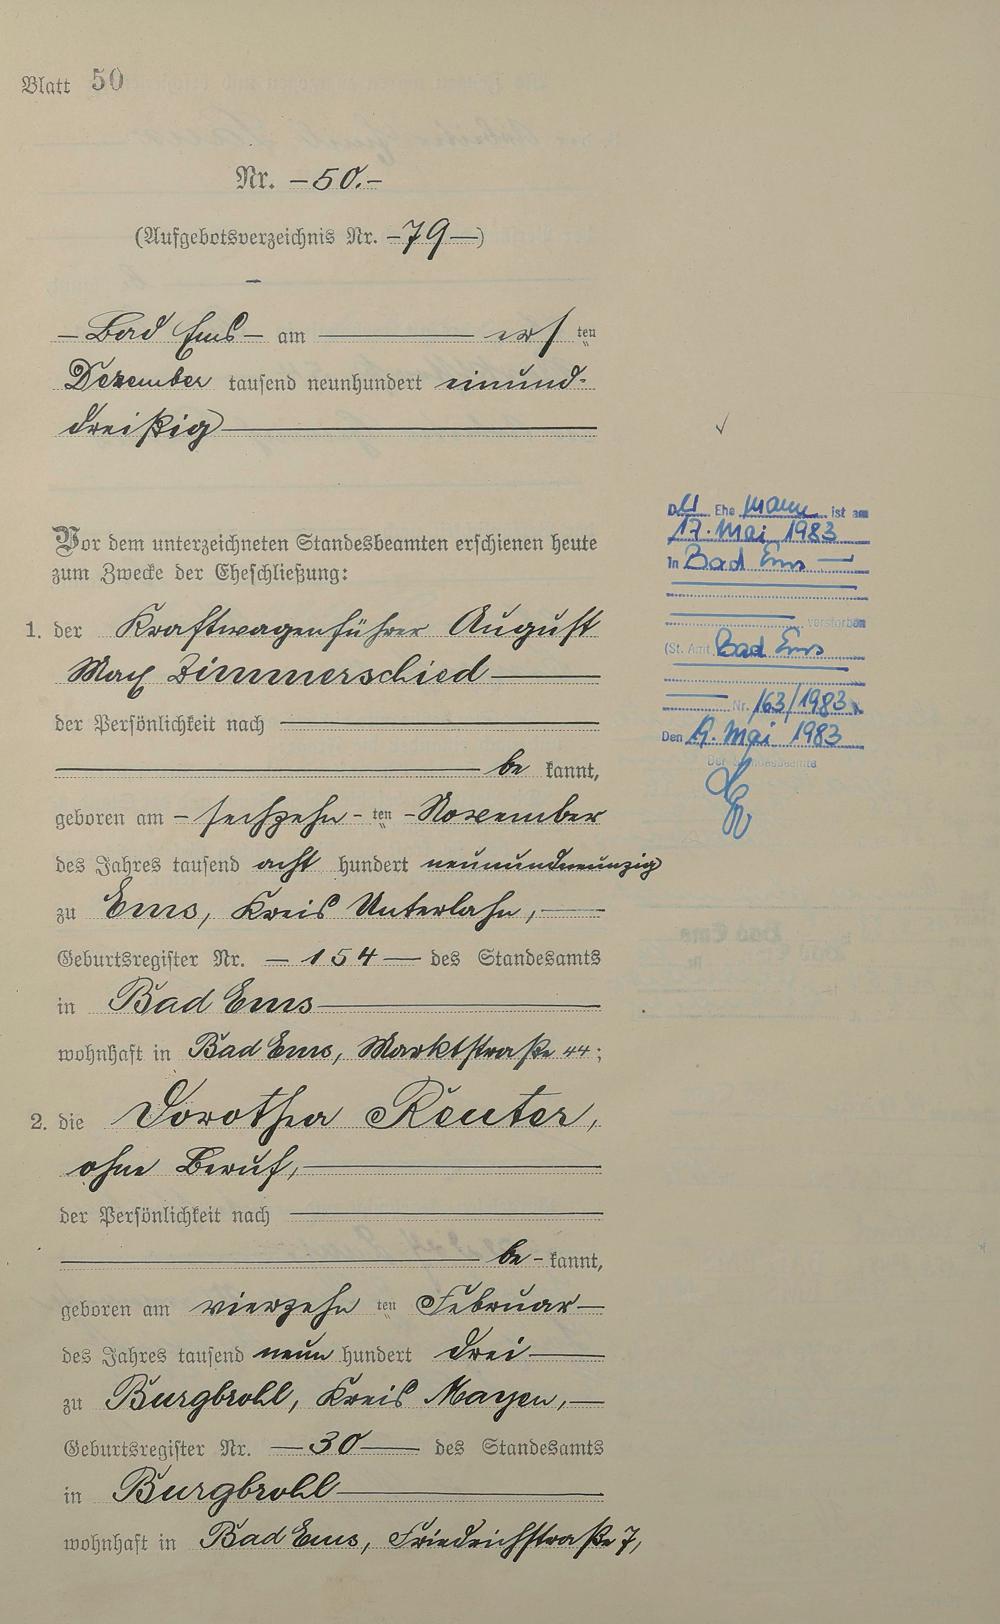 Blatt 50
Nr. – 50. –
(Aufgebotsverzeichnis Nr. – 79 –)
– Bad Ems – am erften
Dezember tausend neunhundert einund-
dreißig
Vor dem unterzeichneten Standesbeamten erschienen heute
zum Zwecke der Eheschließung:
1. der Kraftwagenführer August
Max Zimmerschied
der Persönlichkeit nach
be kannt,
geboren am – sechzehn – ten – November
des Jahres tausend acht hundert neunundneunzig
zu Ems, Kreis Unterlahn,
Geburtsregister Nr. – 154 – des Standesamts
in Bad Ems
wohnhaft in Bad Ems, Marktstraße 44;
2. die Dorothea Reuter,
ohne Beruf,
der Persönlichkeit nach
be – kannt,
geboren am vierzehn ten Februar
des Jahres tausend neun hundert drei
zu Burgbrohl, Kreis Mayen,
Geburtsregister Nr. – 30 – des Standesamts
in Burgbrohl
wohnhaft in Bad Ems, Friedrichstraße 7,
Der Ehe mann ist am
17. Mai 1983
in Bad Ems
verstorben
(St. Amt Bad Ems
Nr. 163/1983
Den Mai 1983
Der Standesbeamte